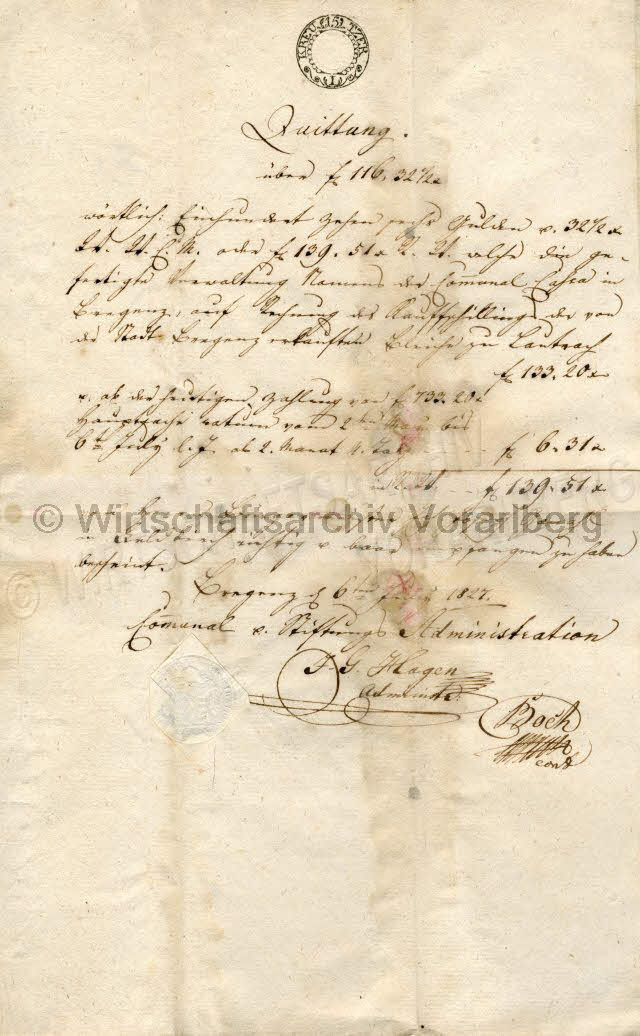 KREU 15 TZER
Quittung.
über f 116. 32½ x
wörtlich: Einhundert zehen sechs Gulden u. 32½ x
W. C. M. oder f 139. 51 x R. W. welche die ge-
fertigte Verwaltung Namens der Comunal Cassa in
Bregenz, auf Rechnung des Kaufschillings der von
der Stadt Bregenz erkauften Bleiche zu Lautrach
f 133. 20 x
u. ab der heutigen Zahlung von f 733. 20 x
vom 2ten bis
6ten July l. J. als 2. Monat 4. Tag - - f 6. 31 x
- - f 139. 51 x
© Wirtschaftsarchiv Vorarlberg
in richtig u. baar empfangen zu haben
bescheint.
Bregenz d 6ten 1827.
Comunal u. Stiftungs Administration
J. G. Hagen
Administr.
Boch
cont